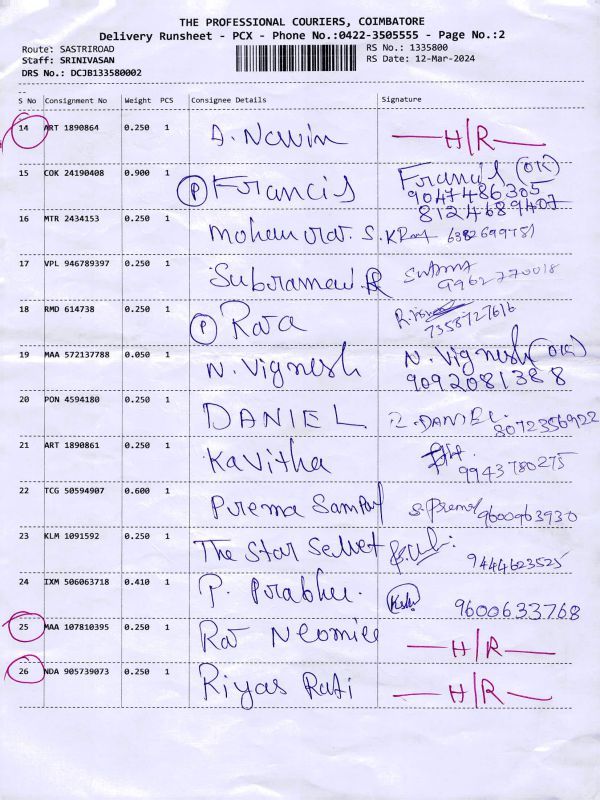 THE PROFESSIONAL COURIERS, COIMBATORE
Delivery Runsheet - PCX - Phone No.:0422-3505555 - Page No.:2
Route: SASTRIROAD RS No.: 1335800
Staff: SRINIVASAN RS Date: 12-Mar-2024
DRS No.: DCJB133580002
S No Consignment No Weight PCS Consignee Details Signature
14 ART 1890864 0.250 1 A. Navin H/R
15 COK 24190408 0.900 1 (P) Francis Francis (OK)
9047486305
8124689407
16 MTR 2434153 0.250 1 S. K Ram
17 VPL 946789397 0.250 1 9962770018
18 RMD 614738 0.250 1 (P) 7358727616
19 MAA 572137788 0.050 1 N. Vignesh N. Vignesh (OK)
9092081388
20 PON 4594180 0.250 1 DANIEL DANIEL. 8072356922
21 ART 1890861 0.250 1 Kavitha 9943780275
22 TCG 50594907 0.600 1 Prema Sampat S. Prema 9600963930
23 KLM 1091592 0.250 1 The Star 9444623525
24 IXM 506063718 0.410 1 P. Prabhu. 9600633768
25 MAA 107810395 0.250 1 H/R
26 NDA 905739073 0.250 1 Riyas H/R